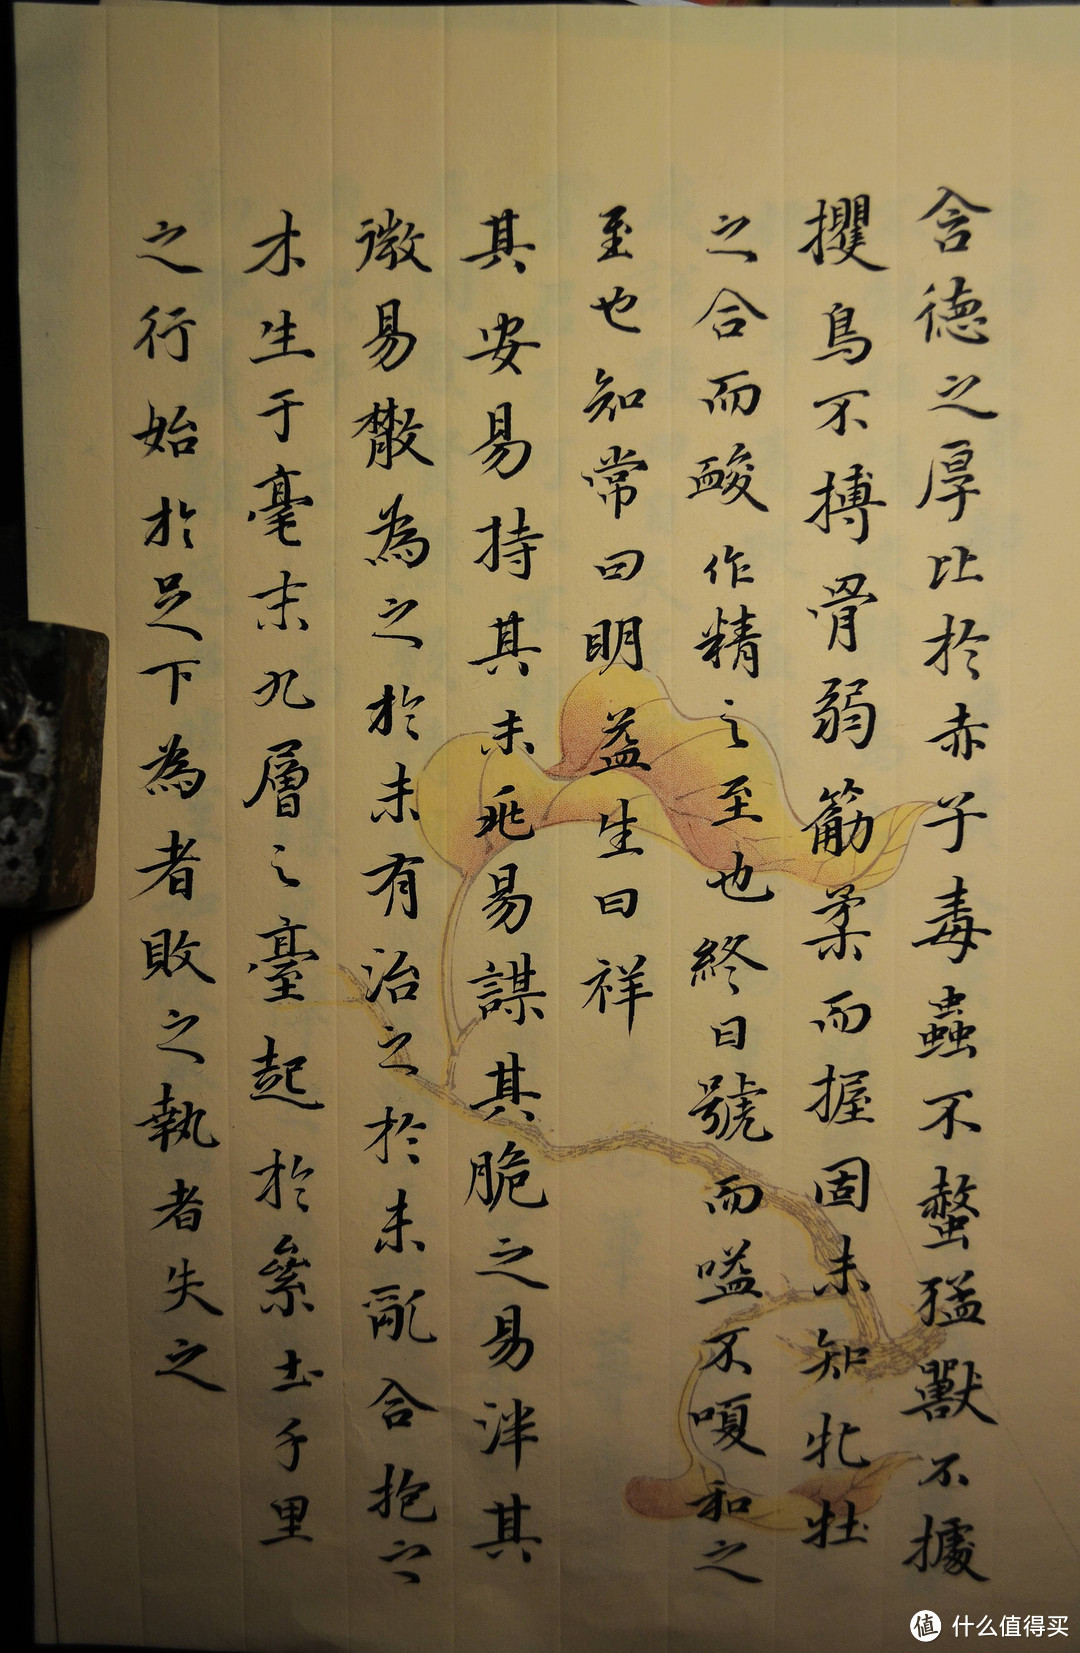 含德之厚比於赤子毒蟲不螫猛獸不據
攫鳥不搏骨弱筋柔而握固未知牝牡
之合而作精之至也終日號而嗌不嗄和之
至也知常曰明益生曰祥
其安易持其未兆易謀其脆之易泮其
微易散為之於未有治之於未亂合抱之
木生于毫末九層之臺起於絫土千里
之行始於足下為者敗之執者失之
值 什么值得买